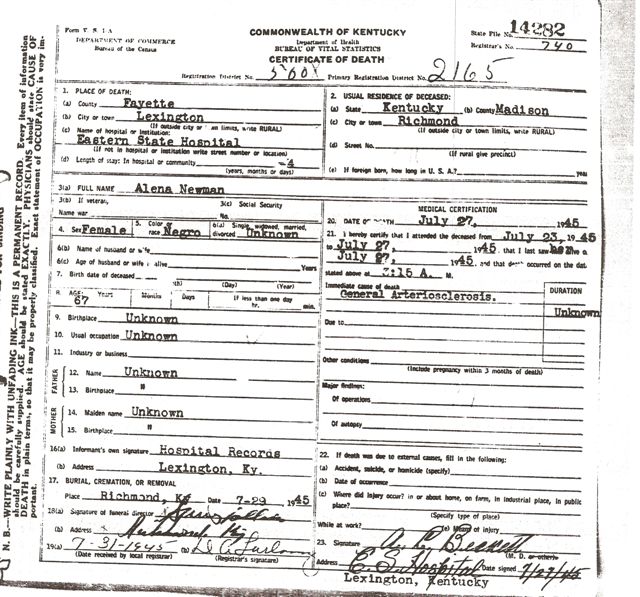 Form V. S. 1-A
DEPARTMENT OF COMMERCE
Bureau of the Census
COMMONWEALTH OF KENTUCKY
Department of Health
BUREAU OF VITAL STATISTICS
CERTIFICATE OF DEATH
State File No. 14282
Registrar's No. 740
Registration District No. Primary Registration District No. 2165
1. PLACE OF DEATH:
(a) County Fayette
(b) City or town Lexington
(If outside city or town limits, write RURAL)
(c) Name of hospital or institution:
Eastern State Hospital
(If not in hospital or institution write street number or location)
(d) Length of stay: In hospital or community -4
(years, months or days)
2. USUAL RESIDENCE OF DECEASED:
(a) State Kentucky (b) County Madison
(c) City or town Richmond
(If outside city or town limits, write RURAL)
(d) Street No.
(If rural give precinct)
(e) If foreign born, how long in U. S. A.? years
3(a) FULL NAME Alena Newman
3(b) If veteran,
Name war
3(c) Social Security
No.
4. Sex Female
5. Color or race Negro
6(a) Single, widowed, married, divorced Unknown
6(b) Name of husband or wife
6(c) Age of husband or wife if alive Years
7. Birth date of deceased
(Day) (Year)
8. AGE: Years Months Days If less than one day
67 hr. min.
9. Birthplace Unknown
10. Usual occupation Unknown
11. Industry or business
FATHER
12. Name Unknown
13. Birthplace "
MOTHER
14. Maiden name Unknown
15. Birthplace "
16(a) Informant's own signature Hospital Records
(b) Address Lexington, Ky.
17. BURIAL, CREMATION, OR REMOVAL
Place Richmond, Ky Date 7-29 1945
18(a) Signature of funeral director
(b) Address Richmond Ky
19(a) 7-31-1945 (b)
(Date received by local registrar) (Registrar's signature)
MEDICAL CERTIFICATION
20. DATE OF DEATH July 27, 1945
21. I hereby certify that I attended the deceased from July 23, 1945
to July 27, 1945, that I last saw
July 27, 1945, and that death occurred on the date
stated above at 3:15 A. M.
Immediate cause of death
General Arteriosclerosis.
DURATION
Unknown
Due to
Other conditions
(Include pregnancy within 3 months of death)
Major findings:
Of operations
Of autopsy
22. If death was due to external causes, fill in the following:
(a) Accident, suicide, or homicide (specify)
(b) Date of occurrence
(c) Where did injury occur? in or about home, on farm, in industrial place, in public
place?
(Specify type of place)
While at work? (e) Means of injury
23. Signature
(M. D. or other)
Address E. S. Hospital Date signed 7/27/45
Lexington, Kentucky
N. B.—WRITE PLAINLY WITH UNFADING INK—THIS IS A PERMANENT RECORD. Every item of information
should be carefully supplied. AGE should be stated EXACTLY. PHYSICIANS should state CAUSE OF
DEATH in plain terms, so that it may be properly classified. Exact statement of OCCUPATION is very im-
portant.